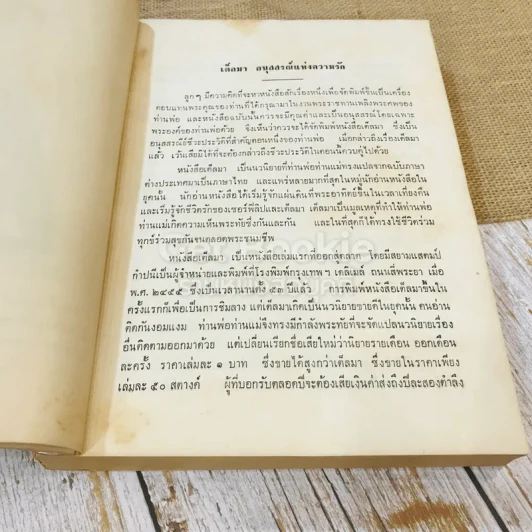 เด็สมา อนุสสรณ์แห่งความรัก
ลูกๆ มีความคิดที่จะหาหนังสือสักเรื่องหนึ่งเพื่อจัดพิมพ์ขึ้นเป็นเครื่อง
ตอบแทนพระคุณของท่านที่ได้กรุณามาในงานพระราชทานเพลิงพระศพของ
ท่านพ่อ และหนังสือฉบับนั้นควรจะมีคุณค่าและเป็นอนุสสรณ์โดยเฉพาะ
พระองค์ของท่านพ่อด้วย จึงเห็นว่าควรจะได้จัดพิมพ์หนังสือเด็สมา ซึ่งเป็น
อนุสสรณ์ชีวะประวัติที่สำคัญตอนหนึ่งของท่านพ่อ เมื่อกล่าวถึงเรื่องเด็สมา
แล้ว เว้นเสียมิได้ที่จะต้องกล่าวถึงชีวะประวัติในตอนนี้ควบคู่ไปด้วย
หนังสือเด็สมา เป็นนวนิยายที่ท่านพ่อท่านแม่ทรงแปลจากฉบับภาษา
ต่างประเทศมาเป็นภาษาไทย และแพร่หลายมากที่สุดในหมู่นักอ่านหนังสือใน
ยุคนั้น นักอ่านหนังสือได้เริ่มรู้จักแผ่นดินที่พระอาทิตย์ขึ้นในเวลาเที่ยงคืน
และเริ่มรู้จักชีวิตรักของเซอร์ฟิลิปและเด็สมา เด็สมาเป็นมูลเหตุที่ทำให้ท่านพ่อ
ท่านแม่เกิดความเห็นพระทัยซึ่งกันและกัน และในที่สุดก็ได้ทรงใช้ชีวิตร่วม
ทุกข์ร่วมสุขกันจนตลอดพระชนม์ชีพ
หนังสือเด็สมา เป็นหนังสือเล่มแรกที่ออกสู่ตลาด โดยมีสยามแสตมป์
กำปนีเป็นผู้จำหน่ายและพิมพ์ที่โรงพิมพ์กรุงเทพฯ เดลิเมล์ ถนนสี่พระยา เมื่อ
พ.ศ. ๒๔๕๕ ซึ่งเป็นเวลานานถึง ๕๓ ปีแล้ว การพิมพ์หนังสือเด็สมาขึ้นใน
ครั้งแรกก็เพื่อเป็นการชิมลาง แต่เด็สมาเกิดเป็นนวนิยายขายดีในยุคนั้น คนอ่าน
ติดกันงอมแงม ท่านพ่อท่านแม่จึงทรงมีกำลังพระทัยที่จะจัดแปลนวนิยายเรื่อง
อื่นติดตามออกมาด้วย แต่เปลี่ยนเรียกชื่อเสียใหม่ว่านิยายรายเดือน ออกเดือน
ละครั้ง ราคาเล่มละ ๑ บาท ซึ่งขายได้สูงกว่าเด็สมา ซึ่งขายในราคาเพียง
เล่มละ ๕๐ สตางค์ ผู้ที่บอกรับตลอดปีจะต้องเสียเงินค่าส่งถึงปีละสองตำลึง